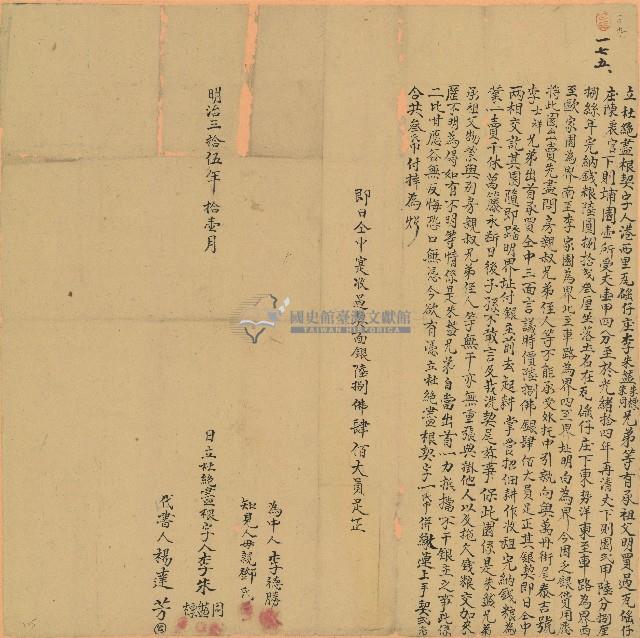 一七五、
立杜絕盡根契字人港西里瓦磘仔庄李朱益朱標朱同兄弟等有承祖父明買過瓦磘仔
庄陳裏宮下則埔園壹所受丈壹甲四分至於光緒拾四年再清丈下則園弍甲陸分捌厘
捌絲年完納錢粮陸圓捌拾弍叁厘坐落土名在瓦磘仔庄下東勢洋東至車路為界西
至歐家園為界南至李家園為界北至車路為界四至界址明白為界今因乏銀費用愿
將此園出賣先盡問房親叔兄弟侄人等不能承受外托中引就向與萬丹街尾泰吉號
李士祥兄弟出首承買仝中三面言議時價陸捌佛銀肆佰大員足正其銀契即日仝中
兩相交訖其園隨即踏明界址付銀主前去起耕掌管招佃耕作收租完納錢粮為
業一賣千休萬籐永斷日後子孫不敢言及找洗契足等事保此園係是朱益兄弟
承祖父物業與別房親叔兄弟侄人等無干亦無重張典掛他人以及拖欠錢粮交加來
歷不明為碍如有不明等情係是朱益兄弟自當出首一力抵擋不干銀主之事此係
二比甘愿各無反悔恐口無憑今欲有憑立杜絕盡根契字一帋併繳連上手契弍帋
合共叁帋付持為炤
即日仝中寔收過契面銀陸捌佛肆佰大員足正
國史館臺灣文獻館
TAIWAN HISTORICA
為中人李德勝
知見人母親鄭氏
明治三拾伍年拾壹月 日立杜絕盡根字人李朱同益標
代書人楊達芳